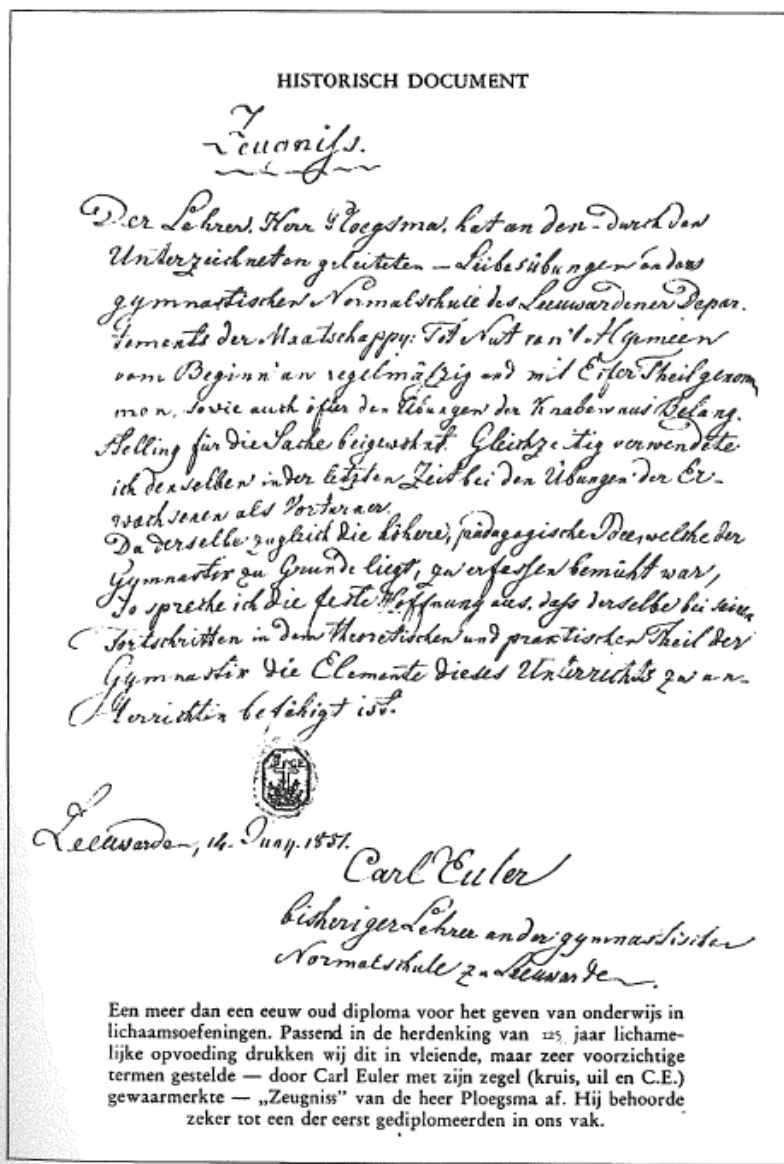 HISTORISCH DOCUMENT
Zeugniss.
Der Lehrer, Herr Ploegsma, hat an den – durch den
Unterzeichneten geleiteten – Leibesübungen an der
gymnastischen Normalschule des Leeuwardener Depar-
tements der Maatschappy: Tot Nut van 't Algemeen
vom Beginn an regelmäszig und mit Eifer Theil genom
men, sowie auch öfter den Übungen der Knaben aus Belang-
stelling für die Sache beigewohnt. Gleichzeitig verwendete
ich denselben in der letzten Zeit bei den Übungen der Er-
wachsenen als Vorturner.
Da derselbe zugleich die höhere, pädagogische Idee, welche der
Gymnastik zu Grunde liegt, zu erfassen bemüht war,
so spreche ich die feste Hoffnung aus, dass derselbe bei seinen
Fortschritten in dem theoretischen und praktischen Theil der
Gymnastik die Elemente dieses Unterrichts zu un-
terrichten befähigt ist.
Leeuwarden, 14. Juny. 1851.
Carl Euler
bisheriger Lehrer an der gymnastischen
Normalschule zu Leeuwarden.
Een meer dan een eeuw oud diploma voor het geven van onderwijs in
lichaamsoefeningen. Passend in de herdenking van 125 jaar lichame-
lijke opvoeding drukken wij dit in vleiende, maar zeer voorzichtige
termen gestelde — door Carl Euler met zijn zegel (kruis, uil en C.E.)
gewaarmerkte — „Zeugniss” van de heer Ploegsma af. Hij behoorde
zeker tot een der eerst gediplomeerden in ons vak.